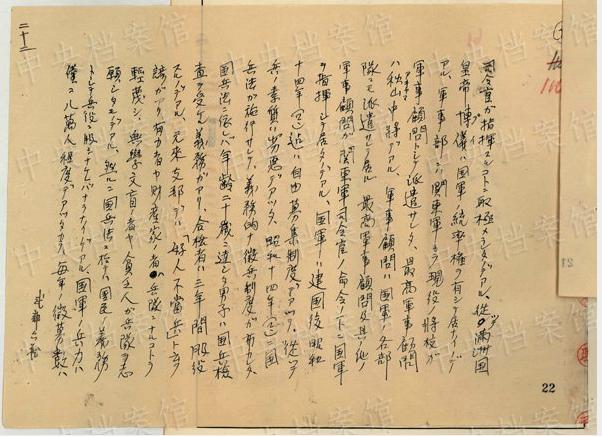 司令官ガ指揮スルコトニ取極メラレタノデアル、従ッテ満洲国
皇帝溥儀ハ国軍ノ統率権ヲ有シテ居ナイノデ
アル、軍事部ニハ関東軍カラ現役ノ将校ガ
軍事顧問トシテ派遣サレタ、最高軍事顧問
ハ秋山中将デアル、軍事顧問ハ国軍ノ各部
隊ニモ派遣サレテ居ル 最高軍事顧問及其ノ他ノ
軍事顧問ガ関東軍司令官ノ命令ノ下ニ国軍
ヲ指揮シテ居タノデアル、国軍ハ建国後昭和
十四年(?)迄ハ自由募集制度デアッタ、従ッテ
兵ノ素質ハ劣悪デアッタ、昭和十四年(?)ニ国
兵法ガ施行サレテ、義務的ナ徴兵制度ガ布カレタ、
国兵法ニ依レバ年齢二十歳ニ達シタ男子ハ国兵検
査ヲ受ケル義務ガアリ、合格者ハ三年間服役
スルノデアル、元来支那デハ「好人不當兵」ト云フ
諺ガアリ有力者ヤ財産家ノ者ハ兵隊ニナルコトヲ
軽蔑シ、無學文盲者ヤ貧乏人ガ兵隊ヲ志
願シタノデアル、然ルニ国兵法ニ依テハ国民ノ義務
トシテ兵役ニ服シナケレバナラナイノデアル、国軍ノ兵力ハ
僅ニ八萬人程度デアッタカラ毎年ノ徴募数ハ
武部六蔵
二十二
22
中央档案馆